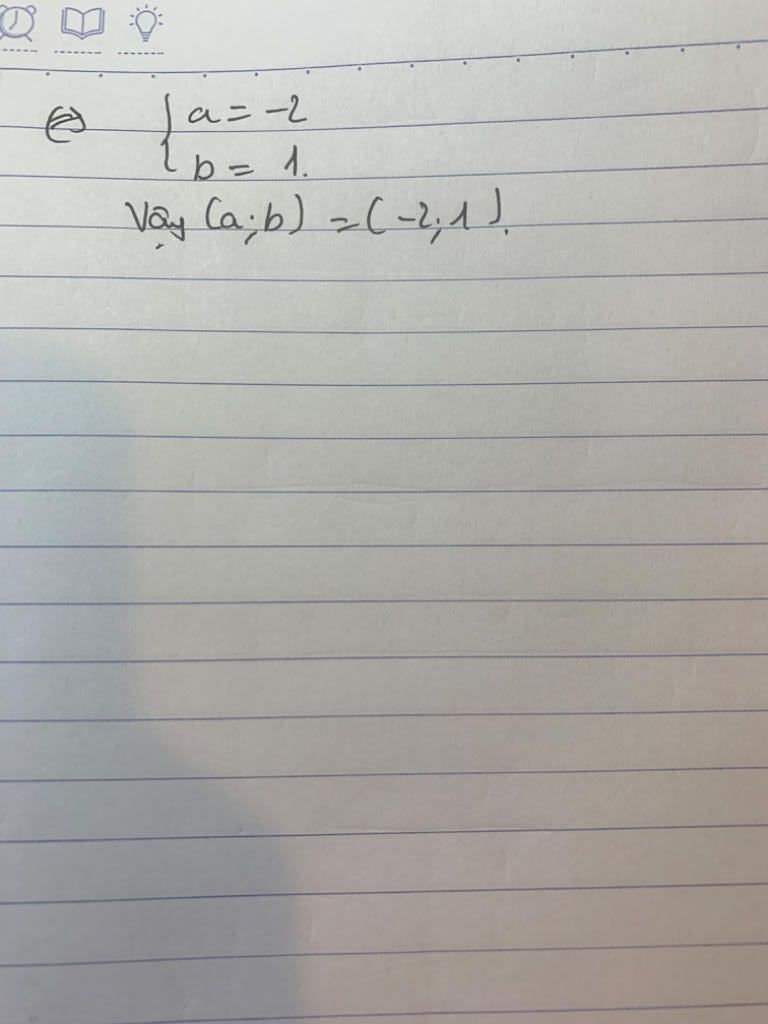 ⇔ { a = -2
b = 1.
Vậy (a; b) = (-2; 1).